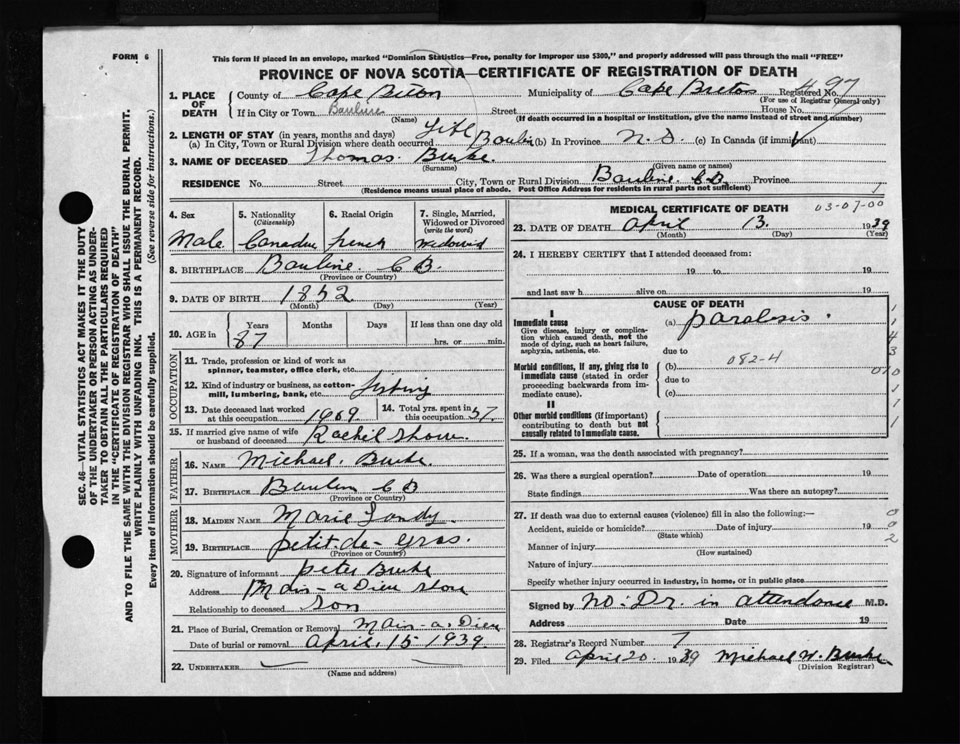 FORM 6
This form if placed in an envelope, marked "Dominion Statistics—Free, penalty for improper use $300," and properly addressed will pass through the mail "FREE"
PROVINCE OF NOVA SCOTIA—CERTIFICATE OF REGISTRATION OF DEATH
SEC. 46—VITAL STATISTICS ACT MAKES IT THE DUTY
OF THE UNDERTAKER OR PERSON ACTING AS UNDER-
TAKER TO OBTAIN ALL THE PARTICULARS REQUIRED
IN THE "CERTIFICATE OF REGISTRATION OF DEATH"
AND TO FILE THE SAME WITH THE DIVISION REGISTRAR WHO SHALL ISSUE THE BURIAL PERMIT.
WRITE PLAINLY WITH UNFADING INK. THIS IS A PERMANENT RECORD.
Every item of information should be carefully supplied. (See reverse side for instructions.)
1. PLACE OF DEATH
County of Cape Breton Municipality of Cape Breton Registered No. 497
(For use of Registrar General only)
If in City or Town Bauline Street House No.
(Name) (If death occurred in a hospital or institution, give the name instead of street and number)
2. LENGTH OF STAY (in years, months and days)
(a) In City, Town or Rural Division where death occurred Life Baulin (b) In Province N.S. (c) In Canada (if immigrant)
3. NAME OF DECEASED Thomas. Burke.
(Surname) (Given name or names)
RESIDENCE No. Street City, Town or Rural Division Bauline C B Province
(Residence means usual place of abode. Post Office Address for residents in rural parts not sufficient)
4. Sex
Male
5. Nationality
(Citizenship)
Canadian
6. Racial Origin
french
7. Single, Married,
Widowed or Divorced
(write the word)
widowed
8. BIRTHPLACE Bauline. C B.
(Province or Country)
9. DATE OF BIRTH 1852
(Month) (Day) (Year)
10. AGE in
Years Months Days If less than one day old
87 hrs. or min.
OCCUPATION
11. Trade, profession or kind of work as
spinner, teamster, office clerk, etc.
12. Kind of industry or business, as cotton-
mill, lumbering, bank, etc. fishing
13. Date deceased last worked
at this occupation 1909
14. Total yrs. spent in
this occupation 57.
15. If married give name of wife
or husband of deceased Rachel
FATHER
16. NAME Michael. Burke.
17. BIRTHPLACE Baulin C B
(Province or Country)
MOTHER
18. MAIDEN NAME Marie
19. BIRTHPLACE petit-de-gras.
(Province or Country)
20. Signature of informant peter Burke
Address Main-a Dieu
Relationship to deceased son
21. Place of Burial, Cremation or Removal Main-a-Dieu
Date of burial or removal April. 15-1939
22. UNDERTAKER
(Name and address)
MEDICAL CERTIFICATE OF DEATH 03-07-00
23. DATE OF DEATH April 13. 1939
(Month) (Day) (Year)
24. I HEREBY CERTIFY that I attended deceased from:
19 to 19
and last saw h alive on 19
CAUSE OF DEATH
I
Immediate cause
Give disease, injury or complica-
tion which caused death, not the
mode of dying, such as heart failure,
asphyxia, asthenia, etc.
(a) paralosis.
due to
Morbid conditions, if any, giving rise to
immediate cause (stated in order
proceeding backwards from im-
mediate cause).
(b) 082-4
due to
(c)
II
Other morbid conditions (if important)
contributing to death but not
causally related to immediate cause.
25. If a woman, was the death associated with pregnancy?
26. Was there a surgical operation? Date of operation 19
State findings Was there an autopsy?
27. If death was due to external causes (violence) fill in also the following:—
Accident, suicide or homicide? Date of injury 19
(State which)
Manner of injury
(How sustained)
Nature of injury
Specify whether injury occurred in industry, in home, or in public place
Signed by no: Dr. in attendance M.D.
Address Date 19
28. Registrar's Record Number 7
29. Filed April 20. 1939 Michael W. Burke
(Division Registrar)